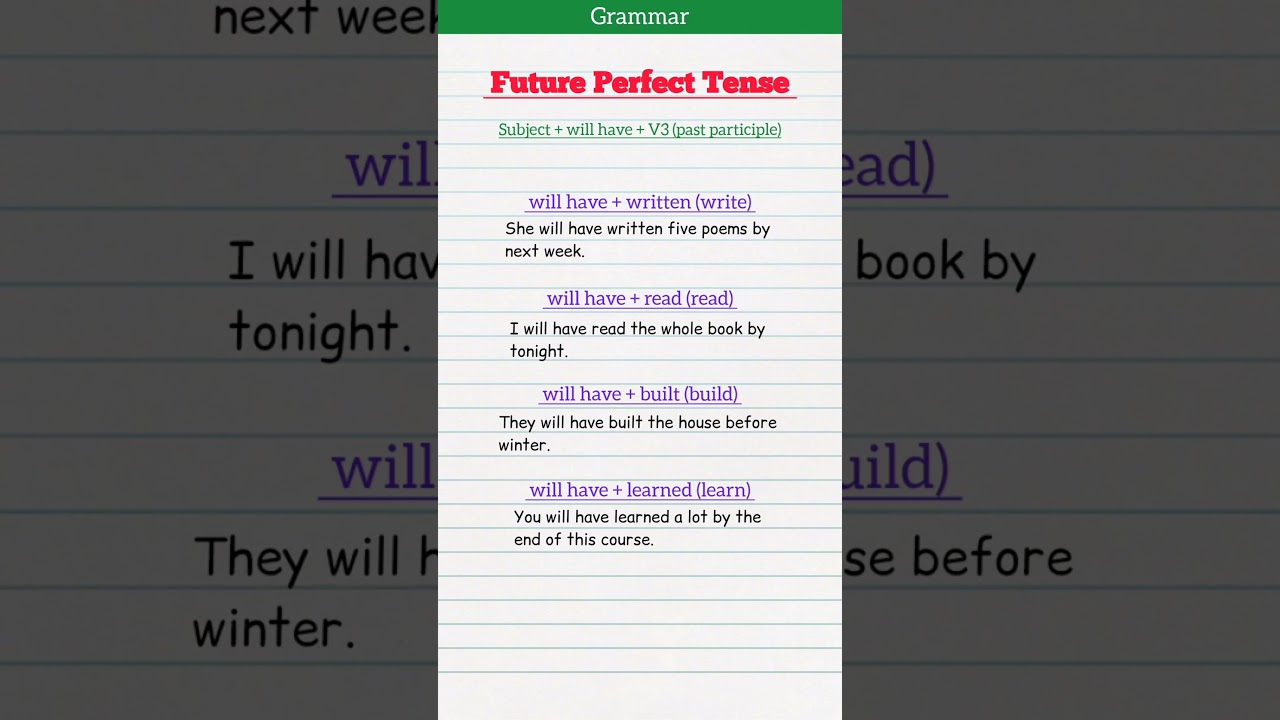 Grammar
Future Perfect Tense
Subject + will have + V3 (past participle)
will have + written (write)
She will have written five poems by
next week.
will have + read (read)
I will have read the whole book by
tonight.
will have + built (build)
They will have built the house before
winter.
will have + learned (learn)
You will have learned a lot by the
end of this course.